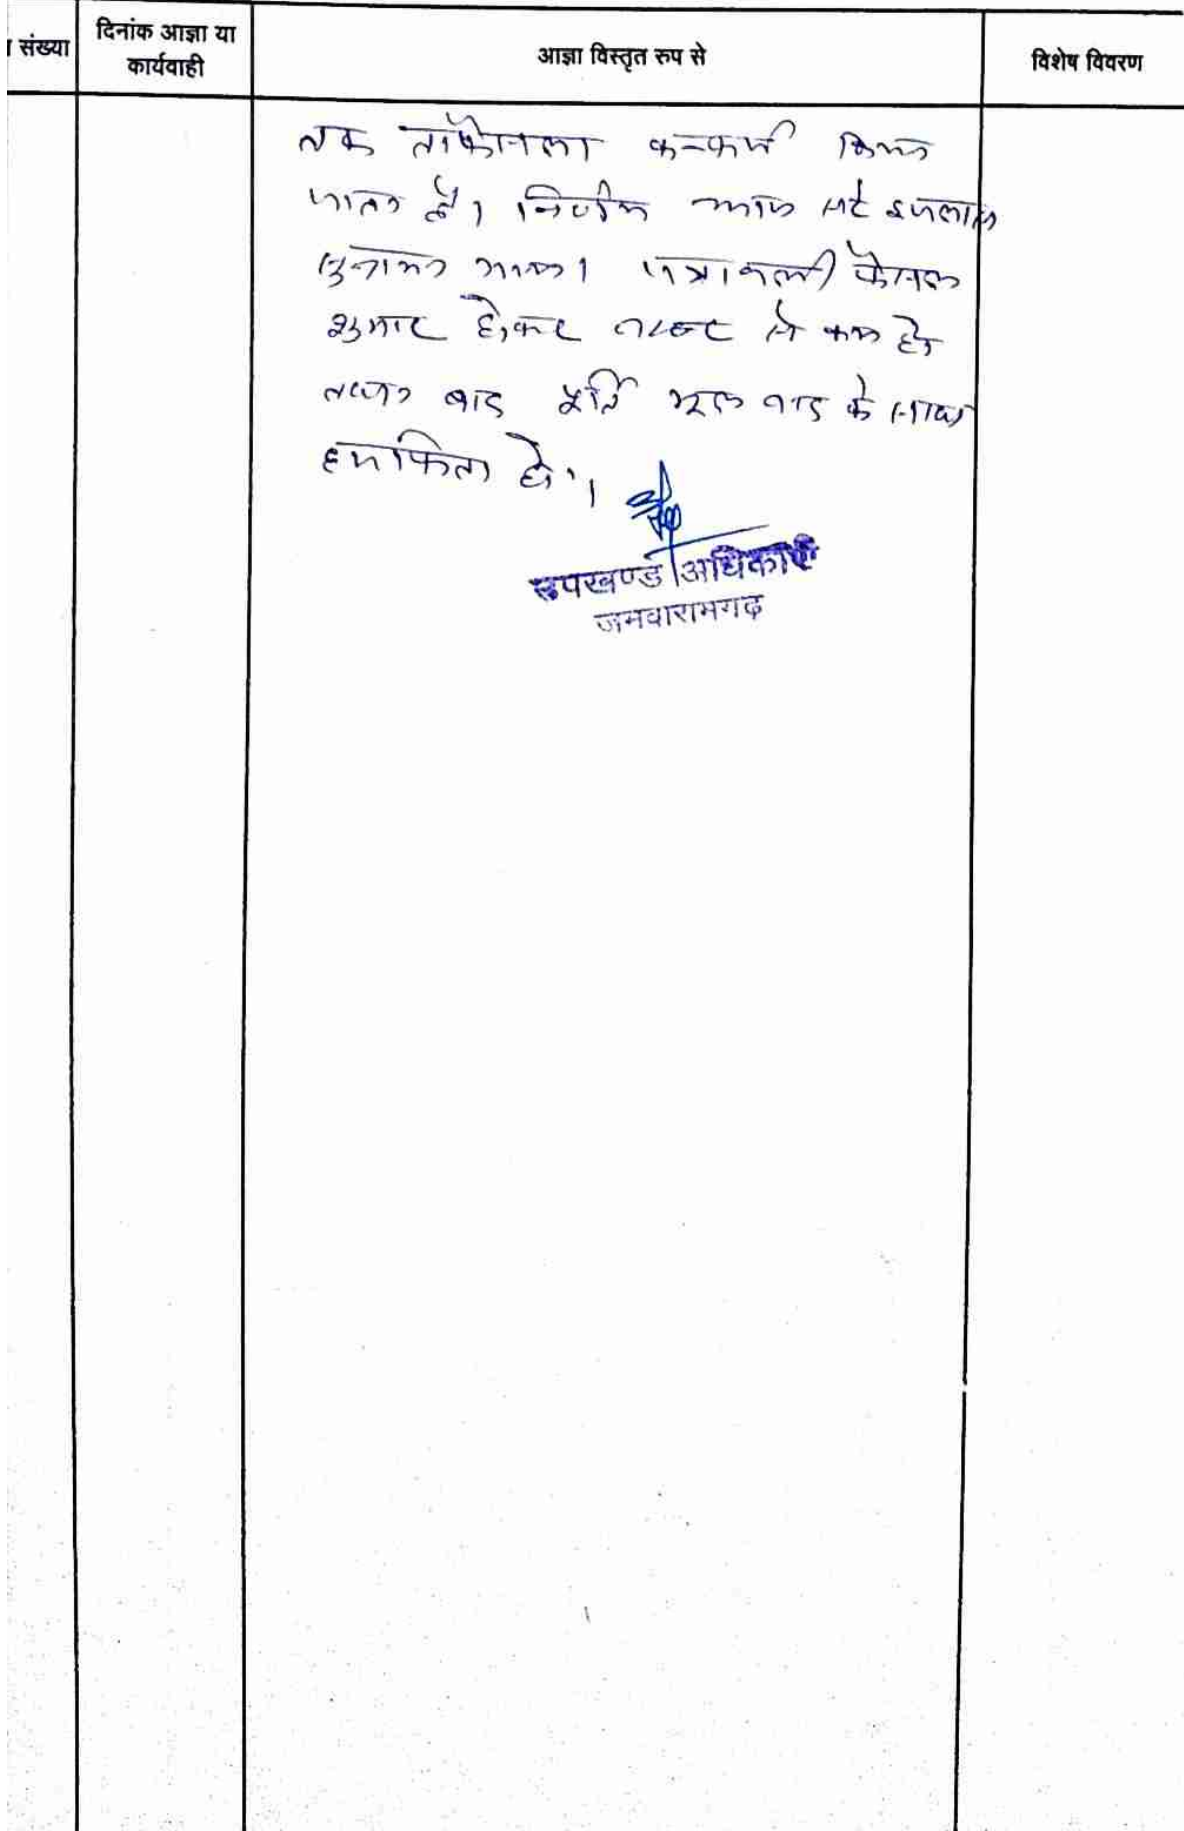 संख्या
दिनांक आज्ञा या
कार्यवाही
आज्ञा विस्तृत रुप से
विशेष विवरण
तक ताफैसला कन्फर्म किया
जाता है। निर्णय आज सरे इजलास
सुनाया गया। पत्रावली फैसल
शुमार होकर नम्बर से कम हो
तथा बाद पूर्ति मूल वाद के साथ
हमफिता हो।
उपखण्ड अधिकारी
जमवारामगढ़